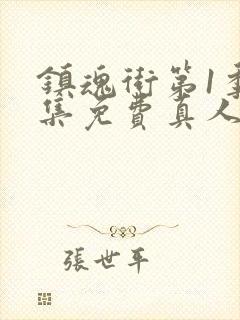 鎮魂街第1季
集免費真人
張世平